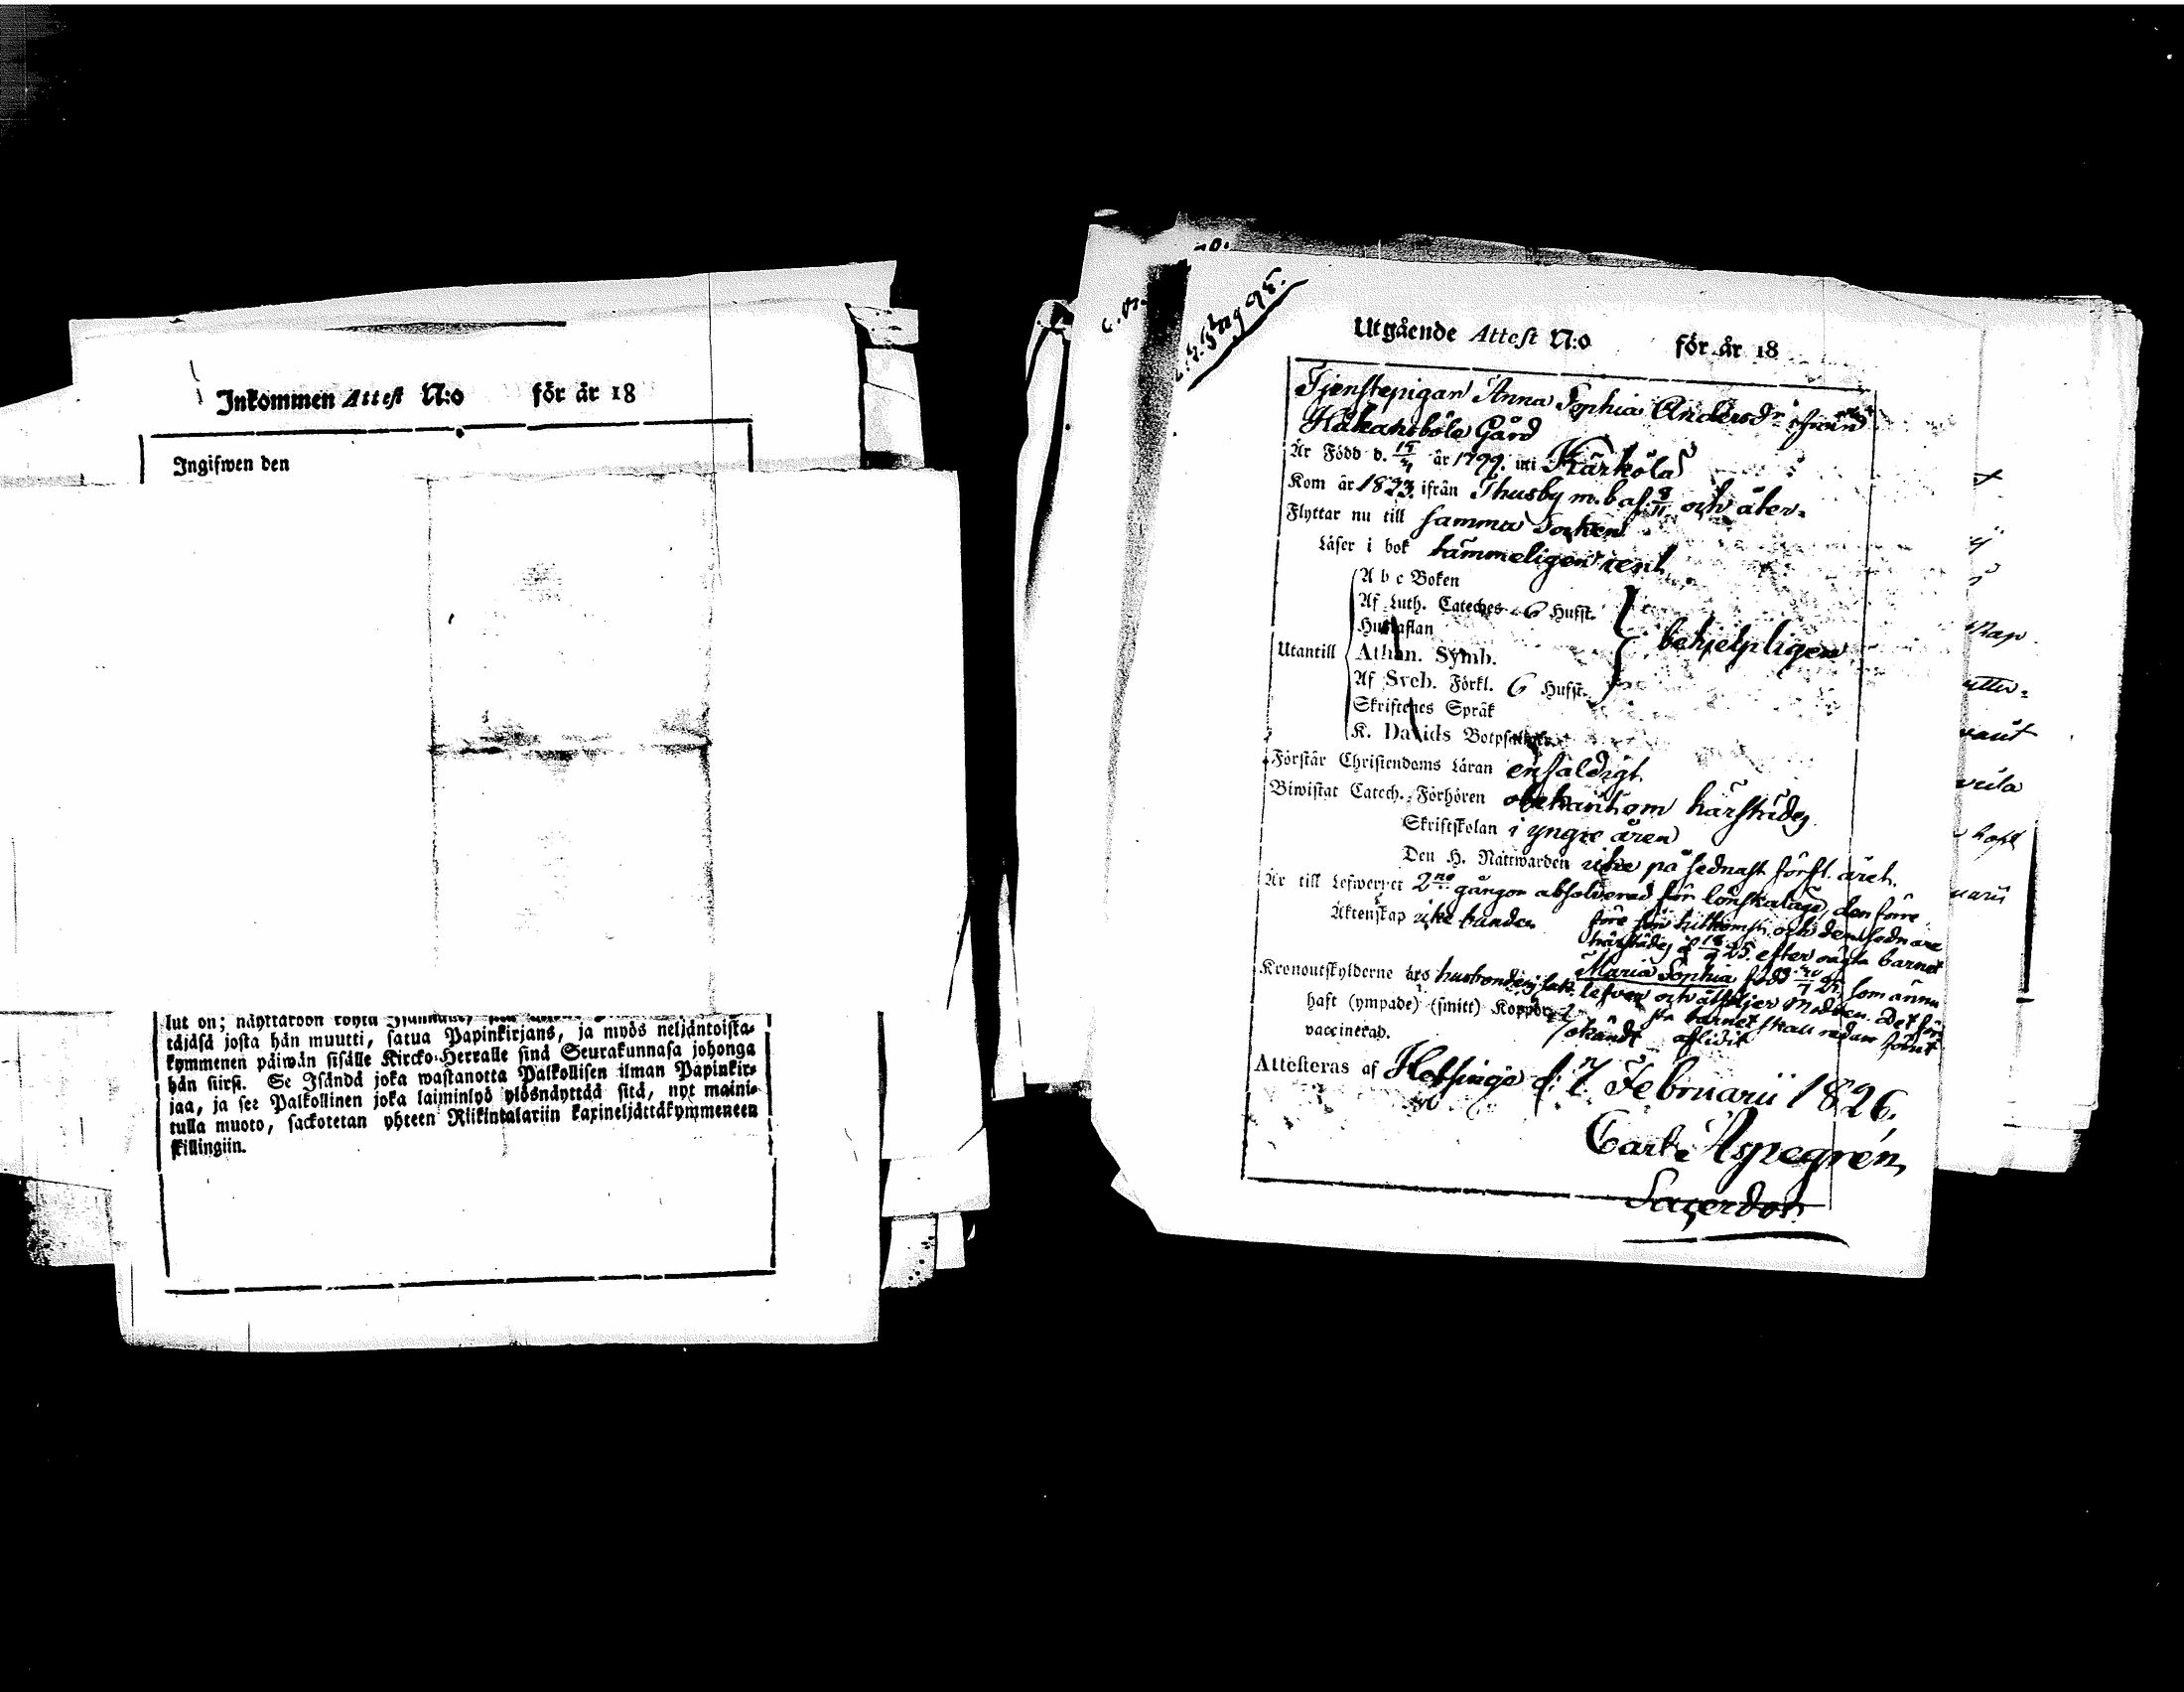 Inkommen Attest N:o för år 18
Ingifwen den
täjäsä josta hän muutti, satua Papinkirjans, ja myös neljäntoista-
kymmenen päiwän sisälle Kircko-Herralle sinä Seurakunnasa johonga
hän siirsi. Se Isändä joka wastanotta Palkollisen ilman Papinkir-
jaa, ja see Palkollinen joka laiminlyö ylösnäyttää sitä, nyt maini-
tulla muoto, sackotetan yhteen Riikintalariin kaxineljättäkymmeneen
skillingiin.
Utgående Attest N:o för år 18
Tjenstepigan Anna Sophia Andersdr ifrån
Håkansböle Gård
Är Född d. år 1799. uti Kärkölä
Kom år 1823. ifrån Thusby m. b af. 8/11 och åter-
Flyttar nu till samma Socken
Läser i bok tämmeligen rent
A b c Boken
Af Luth. Cateches 6 Hufst.
Hustaflan
Utantill Athan. Symb. behjelpligen
Af Sveb. Förkl. 6 Hufst.
Skriftenes Språk
K. Davids Botpsalmer
Förstår Christendoms Läran enfaldigt
Biwistat Catech. Förhören obekant om härstädes
Skriftskolan i yngre åren
Den H. Nattwarden icke på sednast förfl. året.
Är till Lefwernet 2ne gångor absolverad för lönskaläge, den förre
Äktenskap icke bunden före sin hitkomst och den sednare
härstädes d 25. efter oägta barnet
Maria Sophia född som ännu
Kronoutskylderne hos husbonden lefver och åtföljer Modren. Det för-
haft (ympade) (smitt) Koppor barnet skall redan förut
vaccinerad. okändt aflidit
Attesteras af Helsinge d. 7 Februarii 1826.
Carl Aspegrén,
Sacerdos